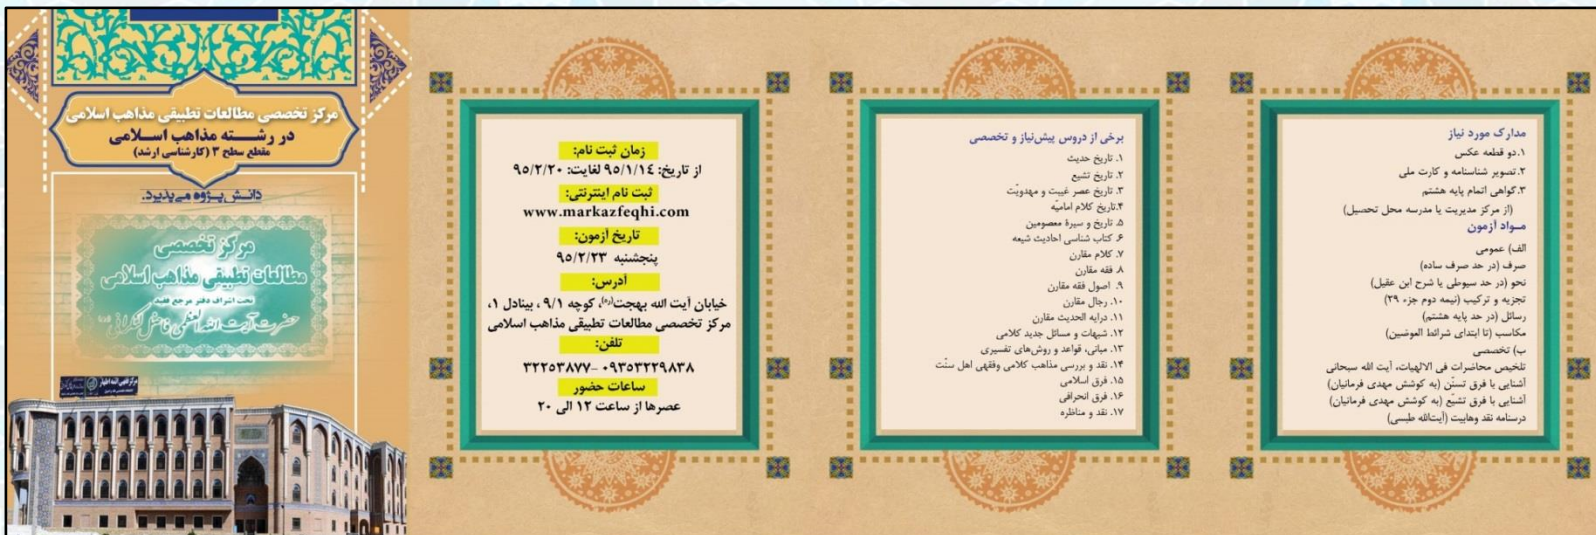 مرکز تخصصی مطالعات تطبیقی مذاهب اسلامی
در رشـــته مذاهب اســـلامی
مقطع سطح ۳ (کارشناسی ارشد)
دانــش پــژوه می‌پذیرد.
مرکز تخصصی
مطالعات تطبیقی مذاهب اسلامی
تحت اشراف دفتر مرجع فقید
حضرت آیت الله العظمی فاضل لنکرانی
مرکز فقهی ائمه اطهار
زمان ثبت نام:
از تاریخ: ۹۵/۱/۱٤ لغایت: ۹۵/۲/۲۰
ثبت نام اینترنتی:
www.markazfeqhi.com
تاریخ آزمون:
پنجشنبه ۹۵/۲/۲۳
آدرس:
خیابان آیت الله بهجت(ره)، کوچه ۹/۱ ، بینادل ۱،
مرکز تخصصی مطالعات تطبیقی مذاهب اسلامی
تلفن:
۳۲۲۵۳۸۷۷- ۰۹۳۵۳۲۲۹۸۳۸
ساعات حضور
عصرها از ساعت ۱۲ الی ۲۰
برخی از دروس پیش‌نیاز و تخصصی
۱. تاریخ حدیث
۲. تاریخ تشیع
۳. تاریخ عصر غیبت و مهدویّت
۴.تاریخ کلام امامیّه
۵. تاریخ و سیرۀ معصومین
۶. کتاب شناسی احادیث شیعه
۷. کلام مقارن
۸. فقه مقارن
۹. اصول فقه مقارن
۱۰. رجال مقارن
۱۱. درایه الحدیث مقارن
۱۲. شبهات و مسائل جدید کلامی
۱۳. مبانی، قواعد و روش‌های تفسیری
۱۴. نقد و بررسی مذاهب کلامی وفقهی اهل سنّت
۱۵. فرق اسلامی
۱۶. فرق انحرافی
۱۷. نقد و مناظره
مدارک مورد نیاز
۱.دو قطعه عکس
۲.تصویر شناسنامه و کارت ملی
۳.گواهی اتمام پایه هشتم
(از مرکز مدیریت یا مدرسه محل تحصیل)
مــواد آزمون
الف) عمومی
صرف (در حد صرف ساده)
نحو (در حد سیوطی یا شرح ابن عقیل)
تجزیه و ترکیب (نیمه دوم جزء ۲۹)
رسائل (در حد پایه هشتم)
مکاسب (تا ابتدای شرائط العوضین)
ب) تخصصی
تلخیص محاضرات فی الالهیات، آیت الله سبحانی
آشنایی با فرق تسنّن (به کوشش مهدی فرمانیان)
آشنایی با فرق تشیّع (به کوشش مهدی فرمانیان)
درسنامه نقد وهابیت (آیت‌الله طبسی)